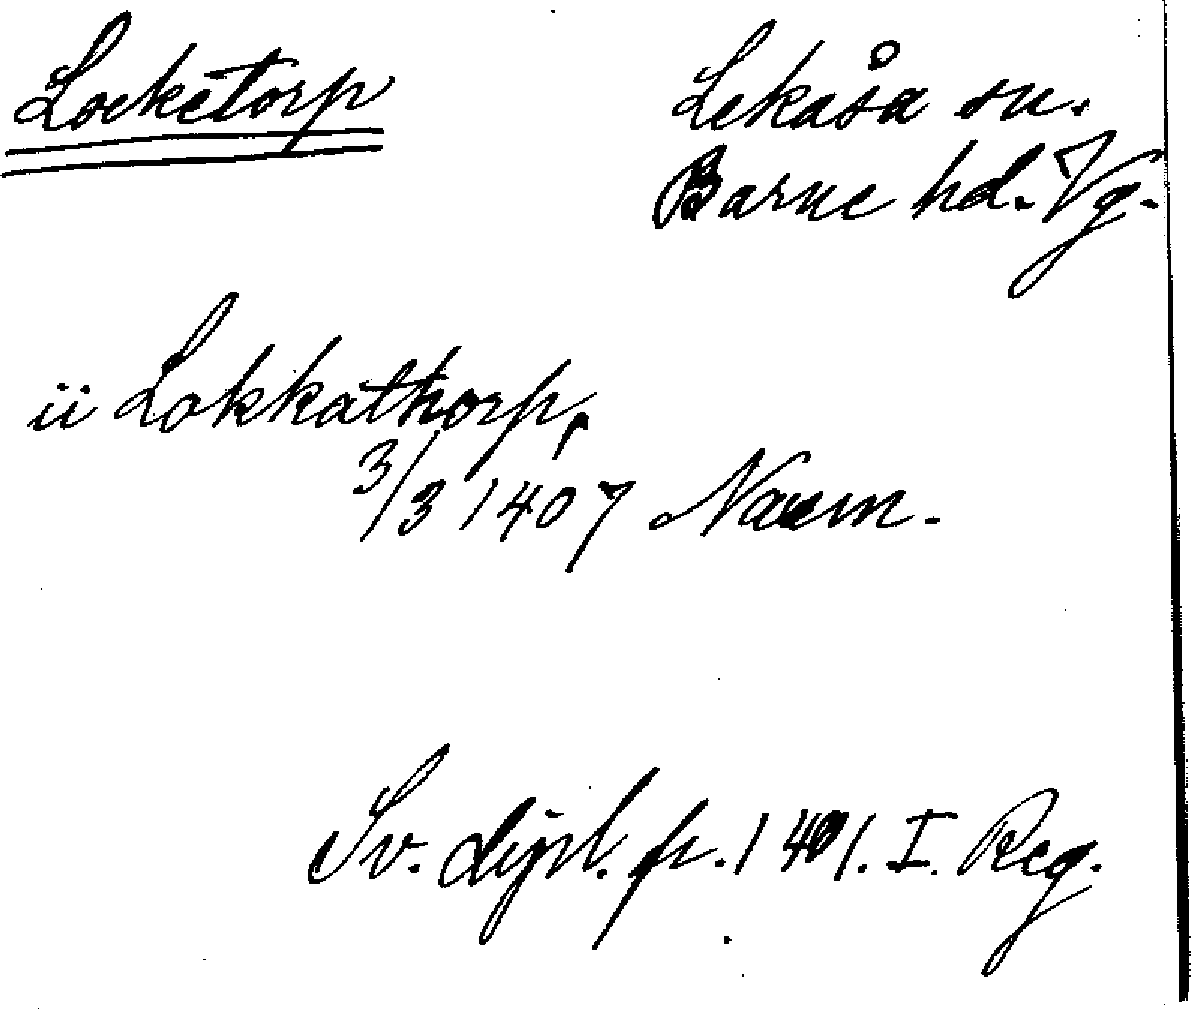 Locketorp
Lekåsa sn.
Barne hd. Vg.
ii Lokkathorp,
3/3 1407
Sv. dipl. fr. 1401. I. Reg.